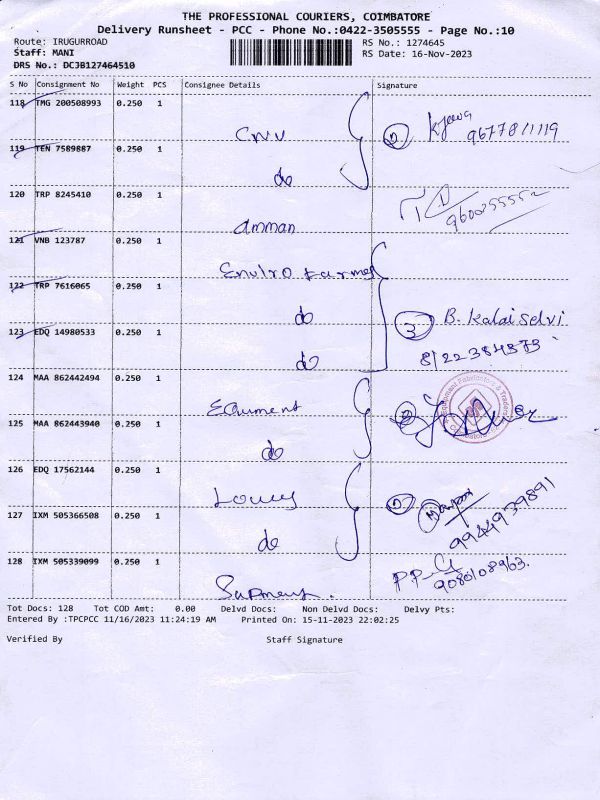 THE PROFESSIONAL COURIERS, COIMBATORE
Delivery Runsheet - PCC - Phone No.:0422-3505555 - Page No.:10
Route: IRUGURROAD RS No.: 1274645
Staff: MANI RS Date: 16-Nov-2023
DRS No.: DCJB127464510
S No Consignment No Weight PCS Consignee Details Signature
118 TMG 200508993 0.250 1
CNV 2 9677811119
119 TEN 7589887 0.250 1
do
120 TRP 8245410 0.250 1
Amman 9600255552
121 VNB 123787 0.250 1
Enviro Farmes
122 TRP 7616065 0.250 1
do 3 B. Kalai Selvi
123 EDQ 14980533 0.250 1
do 8122384373
124 MAA 862442494 0.250 1
2
125 MAA 862443940 0.250 1
do
126 EDQ 17562144 0.250 1
9944939891
127 IXM 505366508 0.250 1
do
128 IXM 505339099 0.250 1
9080108963.
Tot Docs: 128 Tot COD Amt: 0.00 Delvd Docs: Non Delvd Docs: Delvy Pts:
Entered By :TPCPCC 11/16/2023 11:24:19 AM Printed On: 15-11-2023 22:02:25
Verified By Staff Signature